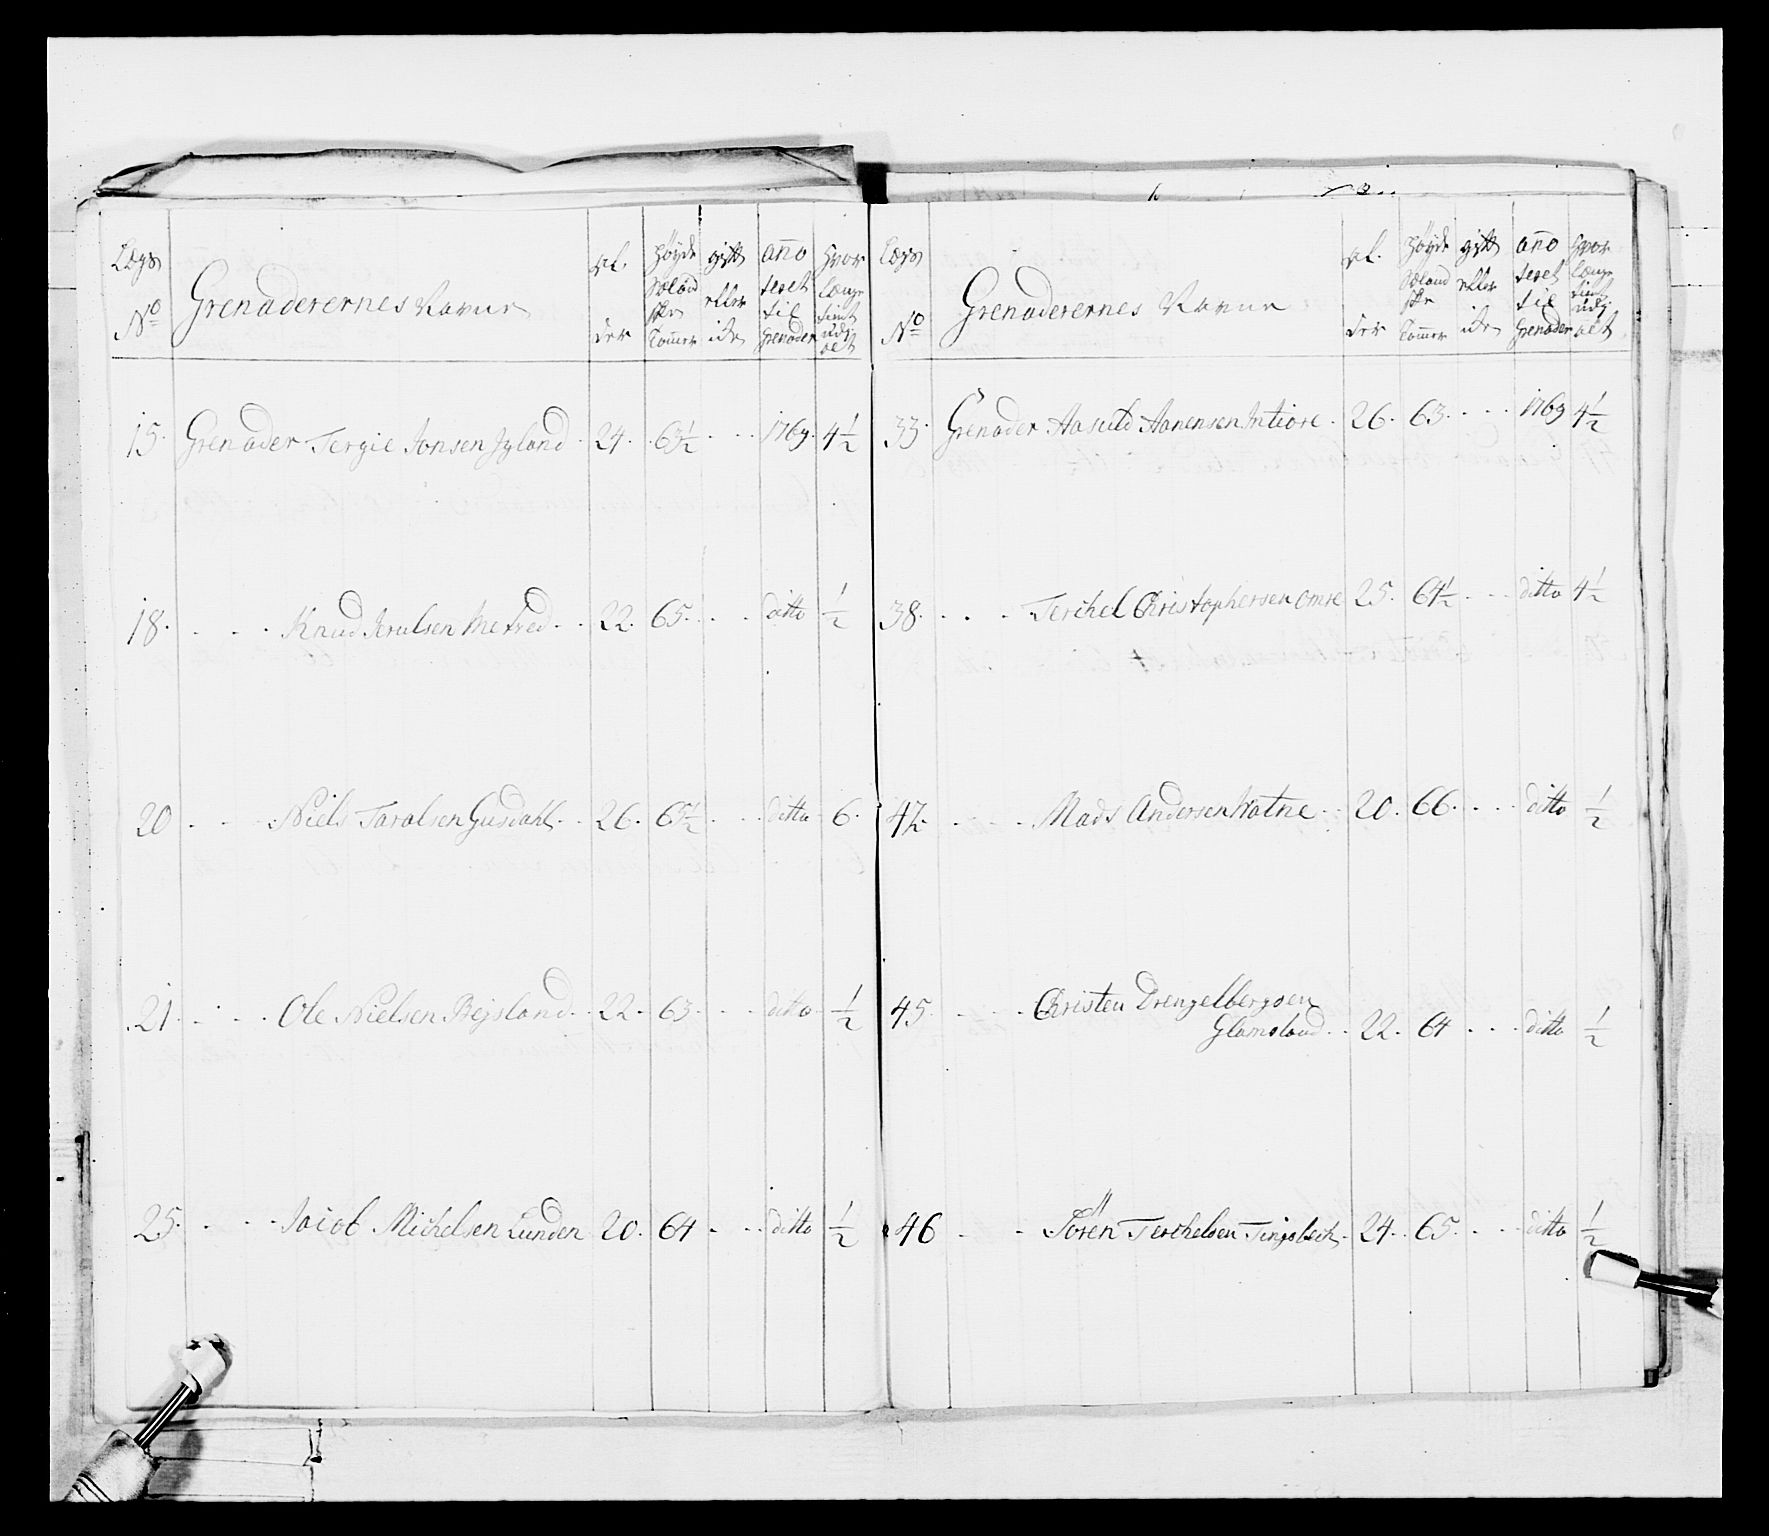 Lægs No
Grenaderernes Navne
Al. der
Høyde Sælandske Tommer
gift eller ide
año seset til Grenader
hvor længe tient udj alt
15. Grenader Tergie Jonsen Jyland. 24. 63½ . . . 1769. 4½
18. . . . Knud Jerulsen Metved . . 22. 65. . . . ditto ½
20 . . . Niels Taralsen Gusdahl. . 26. 65½ . . . ditto 6.
21. . . . Ole Nielsen Rejsland. . 22. 63. . . . ditto ½
25. . . . Jacob Michelsen Lunden 20. 64 . . . ditto ½
Lægs No
Grenaderernes Navne
Al. der
Høyde Sælandske Tommer
gift eller ide
año seset til Grenader
hvor længe tient udj alt
33. Grenader Aasuld Aanensen 26. 63. . . . 1769 4½
38. . . . Terchel Christophersen Omre 25. 64½ . . . ditto 4½
42. . . . Mads Andersen Watne . . 20. 66. . . . ditto ½
45. . . . Christen Drengelbergsen
Glamsland . . 22. 64 . . . ditto ½
46 . . Sören Terchelsen Tingsbech. 24. 65. . . . ditto ½